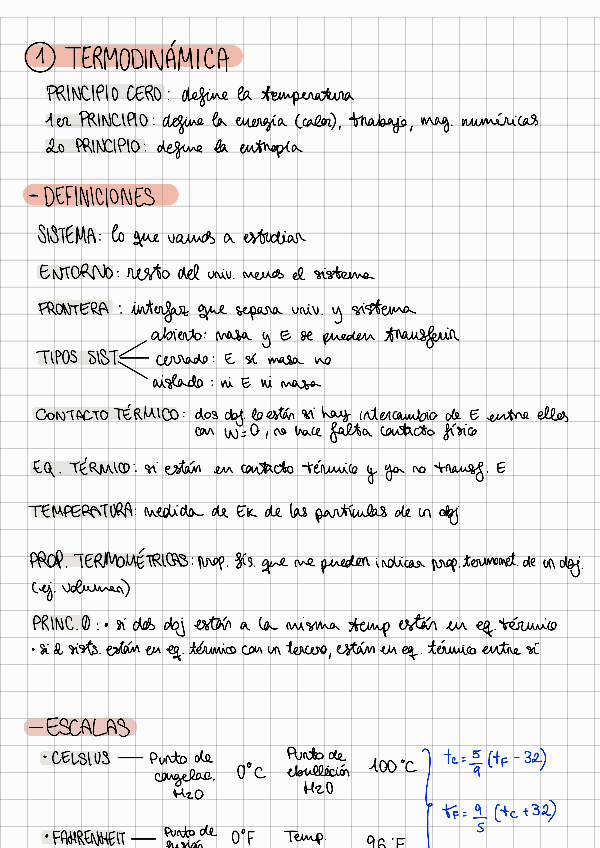 1 TERMODINÁMICA
PRINCIPIO CERO: define la temperatura
1er PRINCIPIO: define la energía (calor), trabajo, mag. numéricas
2o PRINCIPIO: define la entropía
- DEFINICIONES
SISTEMA: lo que vamos a estudiar
ENTORNO: resto del univ. menos el sistema
FRONTERA: interfaz que separa univ. y sistema
abierto: masa y E se pueden transferir
TIPOS SIST cerrado: E sí masa no
aislado: ni E ni masa
CONTACTO TÉRMICO: dos obj lo están si hay intercambio de E entre ellos
con W=0, no hace falta contacto físico
EQ. TÉRMICO: si están en contacto térmico y ya no transf. E
TEMPERATURA: medida de Ek de las partículas de un obj
PROP. TERMOMÉTRICAS: prop. fís. que me pueden indicar prop. termomet. de un obj.
(ej. volumen)
PRINC. 0: • si dos obj están a la misma temp están en eq. térmico
• si 2 sists. están en eq. térmico con un tercero, están en eq. térmico entre sí
- ESCALAS
• CELSIUS — Punto de congelac. H2O 0°C Punto de ebullición H2O 100°C tc = 5/9 (tF - 32)
tF = 9/5 (tc + 32)
• FAHRENHEIT — Punto de fusión 0°F Temp. 96°F